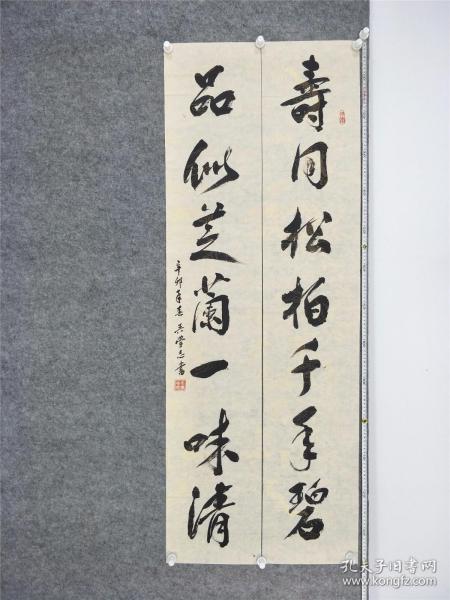 壽同松柏千年碧
品似芝蘭一味清
辛卯年春 吴學志書
孔夫子旧书网
www.kongfz.com